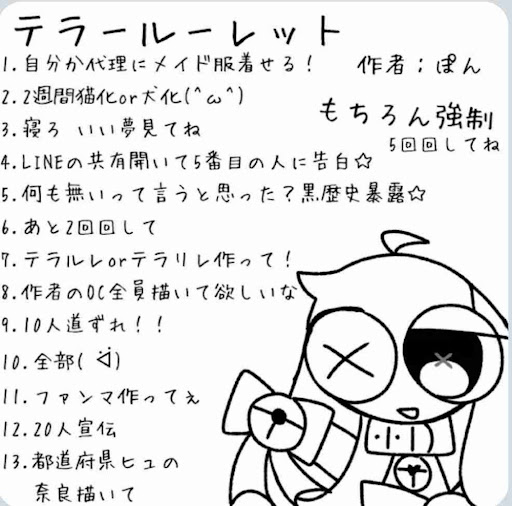 テラールーレット
1.自分か代理にメイド服着せる!
作者:ぽん
2.2週間猫化or犬化(^ω^)
もちろん強制
5回回してね
3.寝ろ いい夢見てね
4.LINEの共有開いて5番目の人に告白☆
5.何も無いって言うと思った?黒歴史暴露☆
6.あと2回回して
7.テラルレorテラリレ作って!
8.作者のOC全員描いて欲しいな
9.10人道ずれ!!
10.全部(
11.ファンマ作ってぇ
12.20人宣伝
13.都道府県ヒュの
奈良描いて